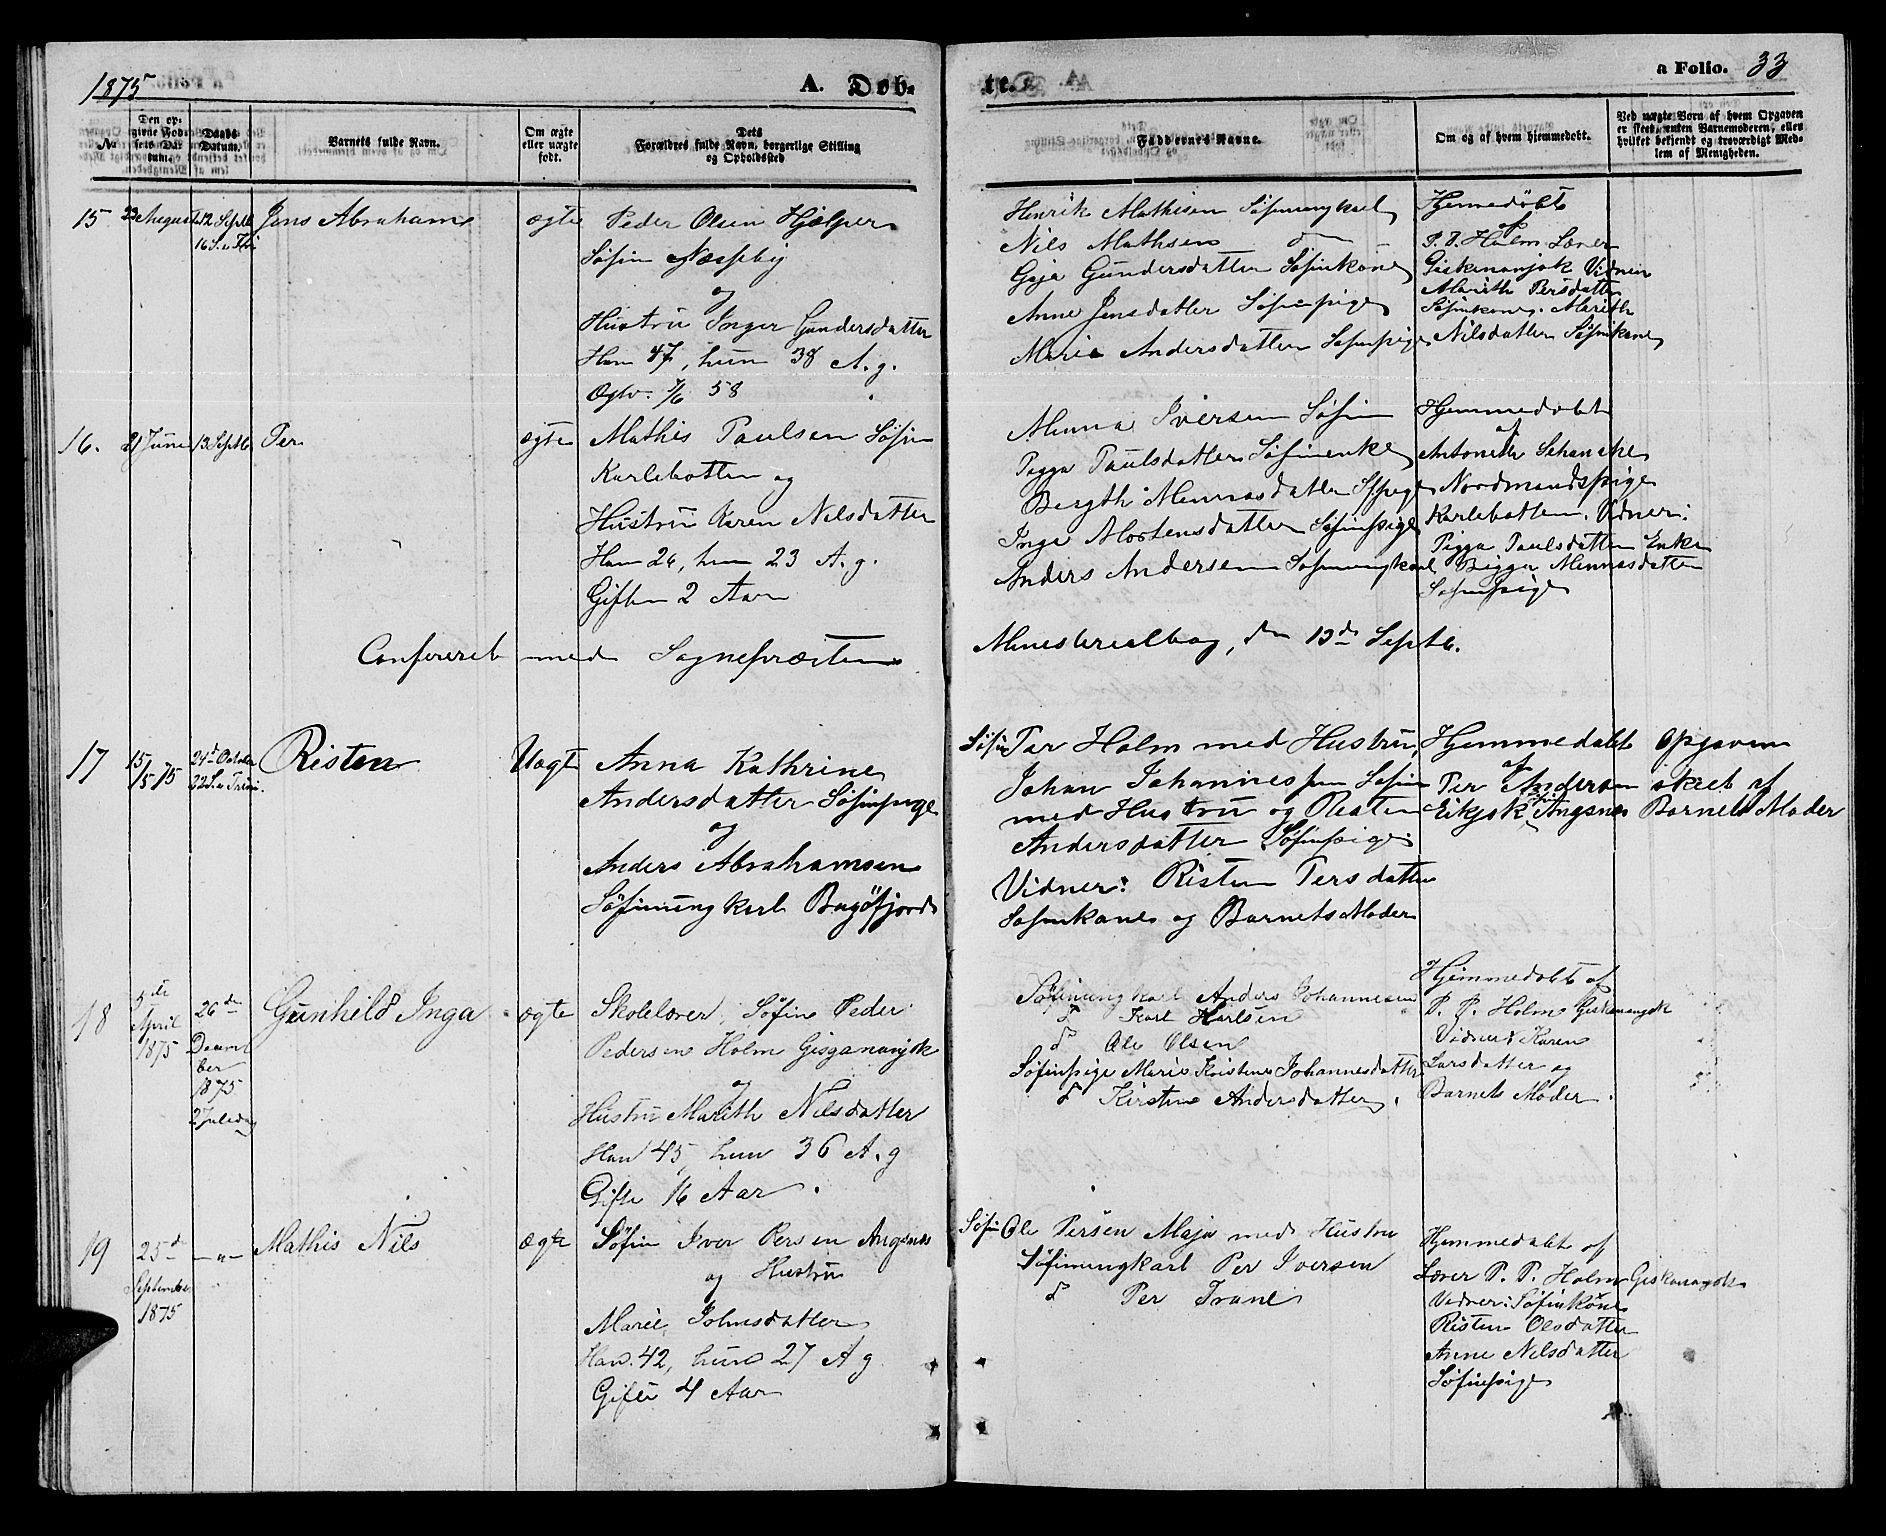 1875
A. Døb-
te.
a Folio. 33
No
Den op-
givne Fød-
sels Da-
tum.
Daabs
Datum.
Barnets fulde Navn.
Om ægte
eller uægte
født.
Dets
Forældres fulde Navn, borgerlige Stilling
og Opholdssted
Faddernes Navne.
Om og af hvem hjemmedøbt.
Ved uægte Børn af hvem Opgaven
er skeet, enten Barnemoderen, eller
hvilket bekjendt og troværdigt Med-
lem af Menigheden.
15
23 August
12 Septb
16 S. e. Tri
Jens Abraham
ægte
Peder Olsen Hjelper
Søfin Næsseby
og
Hustru Inger Gundersdatter
Han 47, hun 38 A. g.
Egtv. 7/6 58
Henrik Mathisen Søfinungkarl
Nils Mathsen do
Gaja Gundersdatter Søfinkone
Anne Jensdatter Søfinpige
Marie Andersdatter Søfinpige
Hjemmedøbt
af
P. P. Holm Lærer
Giskenanjok Vidner
Marith Persdatter
Søfinkone. Marith
Nilsdatter Søfinkone
16.
21 June
13 Septb
Per
ægte
Mathis Paulsen Søfin
Karlebotten og
Hustru Karen Nilsdatter
Han 26, hun 23 A. g.
Giftn 2 Aar
Minna Iversen Søfin
Pigga Paulsdatter Søfinenke
Bergth Minnasdatter Sfpige
Inga Mortensdatter Søfinpige
Anders Andersen Søfinungkarl
Hjemmedøbt
af
Antonette Schancke
Nordmandspige
Karlebotten. Vidner:
Pigga Paulsdatter Enke
Bigga Minnasdatter
Søfinpige
Confereret med Sognepræsten
Ministerialbog, den 13de Septb.
17
15/5 75
24de October
22 S. e. Trini.
Risten
Uægte
Anna Kathrine
Andersdatter Søfinpige
og
Anders Abrahamsen
Søfinungkarl Bugøfjord
Søfin Per Holm med Hustru,
Johan Johannessen Søfin
med Hustru og Risten
Andersdatter Søfinpige
Vidner: Risten Persdatter
Søfinkone og Barnets Moder
Hjemmedøbt
af
Per Andersen
Eikjok Angsnes
Opgaven
skeet af
Barnets Moder
18
5te
April
1875
26de
Decem
ber
1875
2 Juledag
Gunhild Inga
ægte
Skolelærer, Søfin Peder
Pedersen Holm Gisgananjok
og
Hustru Marith Nilsdatter
Han 45, hun 36 A. g
Gifte 16 Aar.
Søfinungkarl Anders Johannesen
do Karl Karlsen
do Ole Olsen
Søfinpige Marie Kristine Johannesdatter
do Kirstine Andersdatter.
Hjemmedøbt af
P. P. Holm Giskenanjok
Vidner: Karen
Larsdatter og
Barnets Moder.
19
25de
September
1875
— " —
Mathis Nils
ægte
Søfin Iver Persen Angsnes
og Hustru
Marie Johnsdatter
Han 42, hun 27 A g
Gifte 4 Aar
Søfin Ole Persen Maja med Hustru
Søfinungkarl Per Iversen
do Per Trane
Hjemmedøbt af
Lærer P. P. Holm Giskananjok
Vidner: Søfinkone
Risten Olsdatter
Anne Nilsdatter
Søfinpige